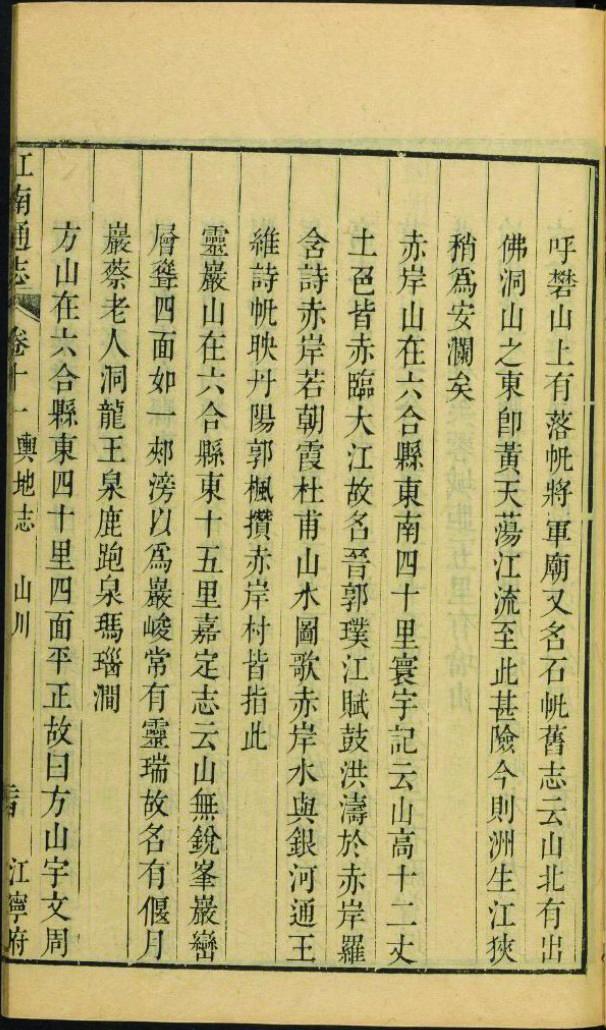 呼礬山上有落帆將軍廟又名石帆舊志云山北有出
佛洞山之東卽黃天蕩江流至此甚險今則洲生江狹
稍爲安瀾矣
赤岸山在六合縣東南四十里寰宇記云山高十二丈
土色皆赤臨大江故名晉郭璞江賦鼓洪濤於赤岸羅
含詩赤岸若朝霞杜甫山水圖歌赤岸水與銀河通王
維詩帆映丹陽郭楓攢赤岸村皆指此
靈巖山在六合縣東十五里嘉定志云山無銳峯巖巒
層聳四面如一郟滂以爲巖峻常有靈瑞故名有偃月
巖蔡老人洞龍王泉鹿跑泉瑪瑙澗
方山在六合縣東四十里四面平正故曰方山宇文周
江南通志 卷十一 輿地志 山川 江寧府